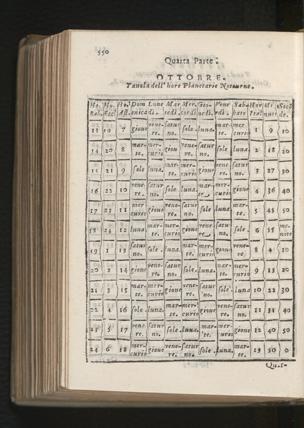 550
Quarta Parte.
OTTOBRE.
Tauola dell'hore Planetarie Notturne.
Dom Lune Mar Mer. Gio- Vene Sab-
enica di. tedi. cordi. uedi. rdi. bato
13 10 7 gioue vene- re. satur no. sole luna. mar- te. mer- curio 1 9 10
14 20 8 mar- te. mer- curio gioue vene- re. satur no. sole luna. 2 18 20
15 21 9 sole luna. mar- te. mer- curio gioue vene- re. satur no. 3 27 30
16 22 10 vene- re. satur no. sole luna. mar- te. mer- curio gioue 4 36 40
17 23 11 mer- curio gioue vene- re. satur no. sole luna. mar- te. 5 45 50
18 24 12 luna. mar- te. mer- curio gioue vene- re. satur no. sole 6 55
19 1 13 satur no. sole luna. mar- te. mer- curio gioue vene- re. 8 4 10
20 2 14 gioue vene- re. satur no. sole luna. mar- te. mer- curio 9 13 20
21 3 15 mar- te. mer- curio gioue vene- re. satur no. sole luna. 10 22 30
22 4 16 sole luna. mar- te. mer- curio gioue vene- re. satur no. 11 31 40
23 5 17 vene- re. satur no. sole luna. mar- te. mer- curio gioue 12 40 50
24 6 18 mer- curio gioue vene- re. satur no. sole luna. mar- te. 13 50 0